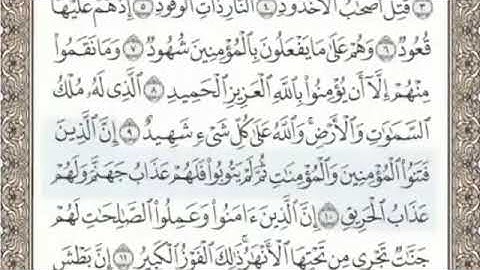 ٣ قُتِلَ أَصْحَٰبُ ٱلْأُخْدُودِ ٤ ٱلنَّارِ ذَاتِ ٱلْوَقُودِ ٥ إِذْ هُمْ عَلَيْهَا
قُعُودٌ ٦ وَهُمْ عَلَىٰ مَا يَفْعَلُونَ بِٱلْمُؤْمِنِينَ شُهُودٌ ٧ وَمَا نَقَمُوا۟
مِنْهُمْ إِلَّآ أَن يُؤْمِنُوا۟ بِٱللَّهِ ٱلْعَزِيزِ ٱلْحَمِيدِ ٨ ٱلَّذِى لَهُۥ مُلْكُ
ٱلسَّمَٰوَٰتِ وَٱلْأَرْضِ ۚ وَٱللَّهُ عَلَىٰ كُلِّ شَىْءٍ شَهِيدٌ ٩ إِنَّ ٱلَّذِينَ
فَتَنُوا۟ ٱلْمُؤْمِنِينَ وَٱلْمُؤْمِنَٰتِ ثُمَّ لَمْ يَتُوبُوا۟ فَلَهُمْ عَذَابُ جَهَنَّمَ وَلَهُمْ
عَذَابُ ٱلْحَرِيقِ ١٠ إِنَّ ٱلَّذِينَ ءَامَنُوا۟ وَعَمِلُوا۟ ٱلصَّٰلِحَٰتِ لَهُمْ
جَنَّٰتٌ تَجْرِى مِن تَحْتِهَا ٱلْأَنْهَٰرُ ۚ ذَٰلِكَ ٱلْفَوْزُ ٱلْكَبِيرُ ١١ إِنَّ بَطْشَ